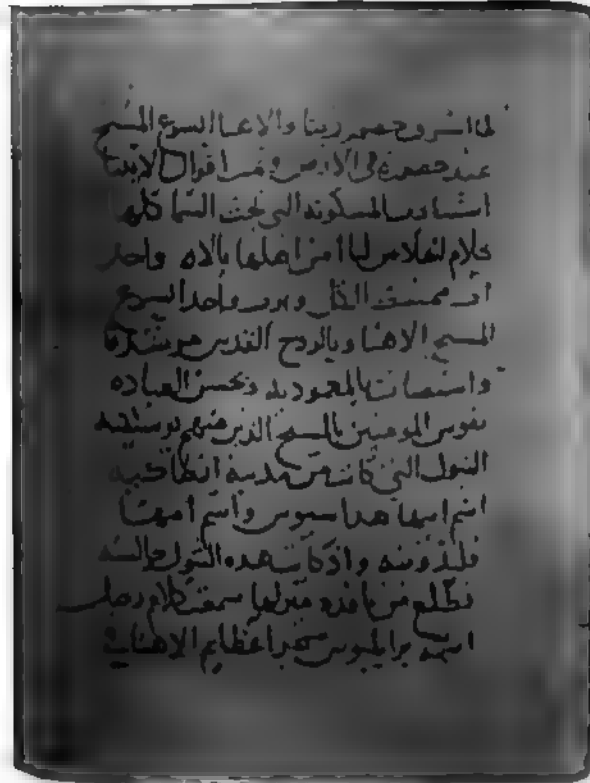 لما اشرق حصور ربنا والاهنا ايسوع المسيح
عند حصوره الى الارض و اقوال الانبيا
المسكونه التي تحت السما كلها
كلام امن اهلها بالاه واحد
اب الكل وبرب واحد ايسوع
المسيح الاهنا وبالروح القدس
واستضات بالمعموديه وبحسن العباده
نفوس المومنين بالمسيح الذين منهم يوستينه
البتول التي كانت من مدينه انطاكيه
اسم ابيها هداسيوس واسم امها
قلدونيه واذ كانت هده البتول جالسه
تطلع من طاقه منزلها سمعت كلام رجل
اسمه برايليوس يخبر اعظايم الاهنا